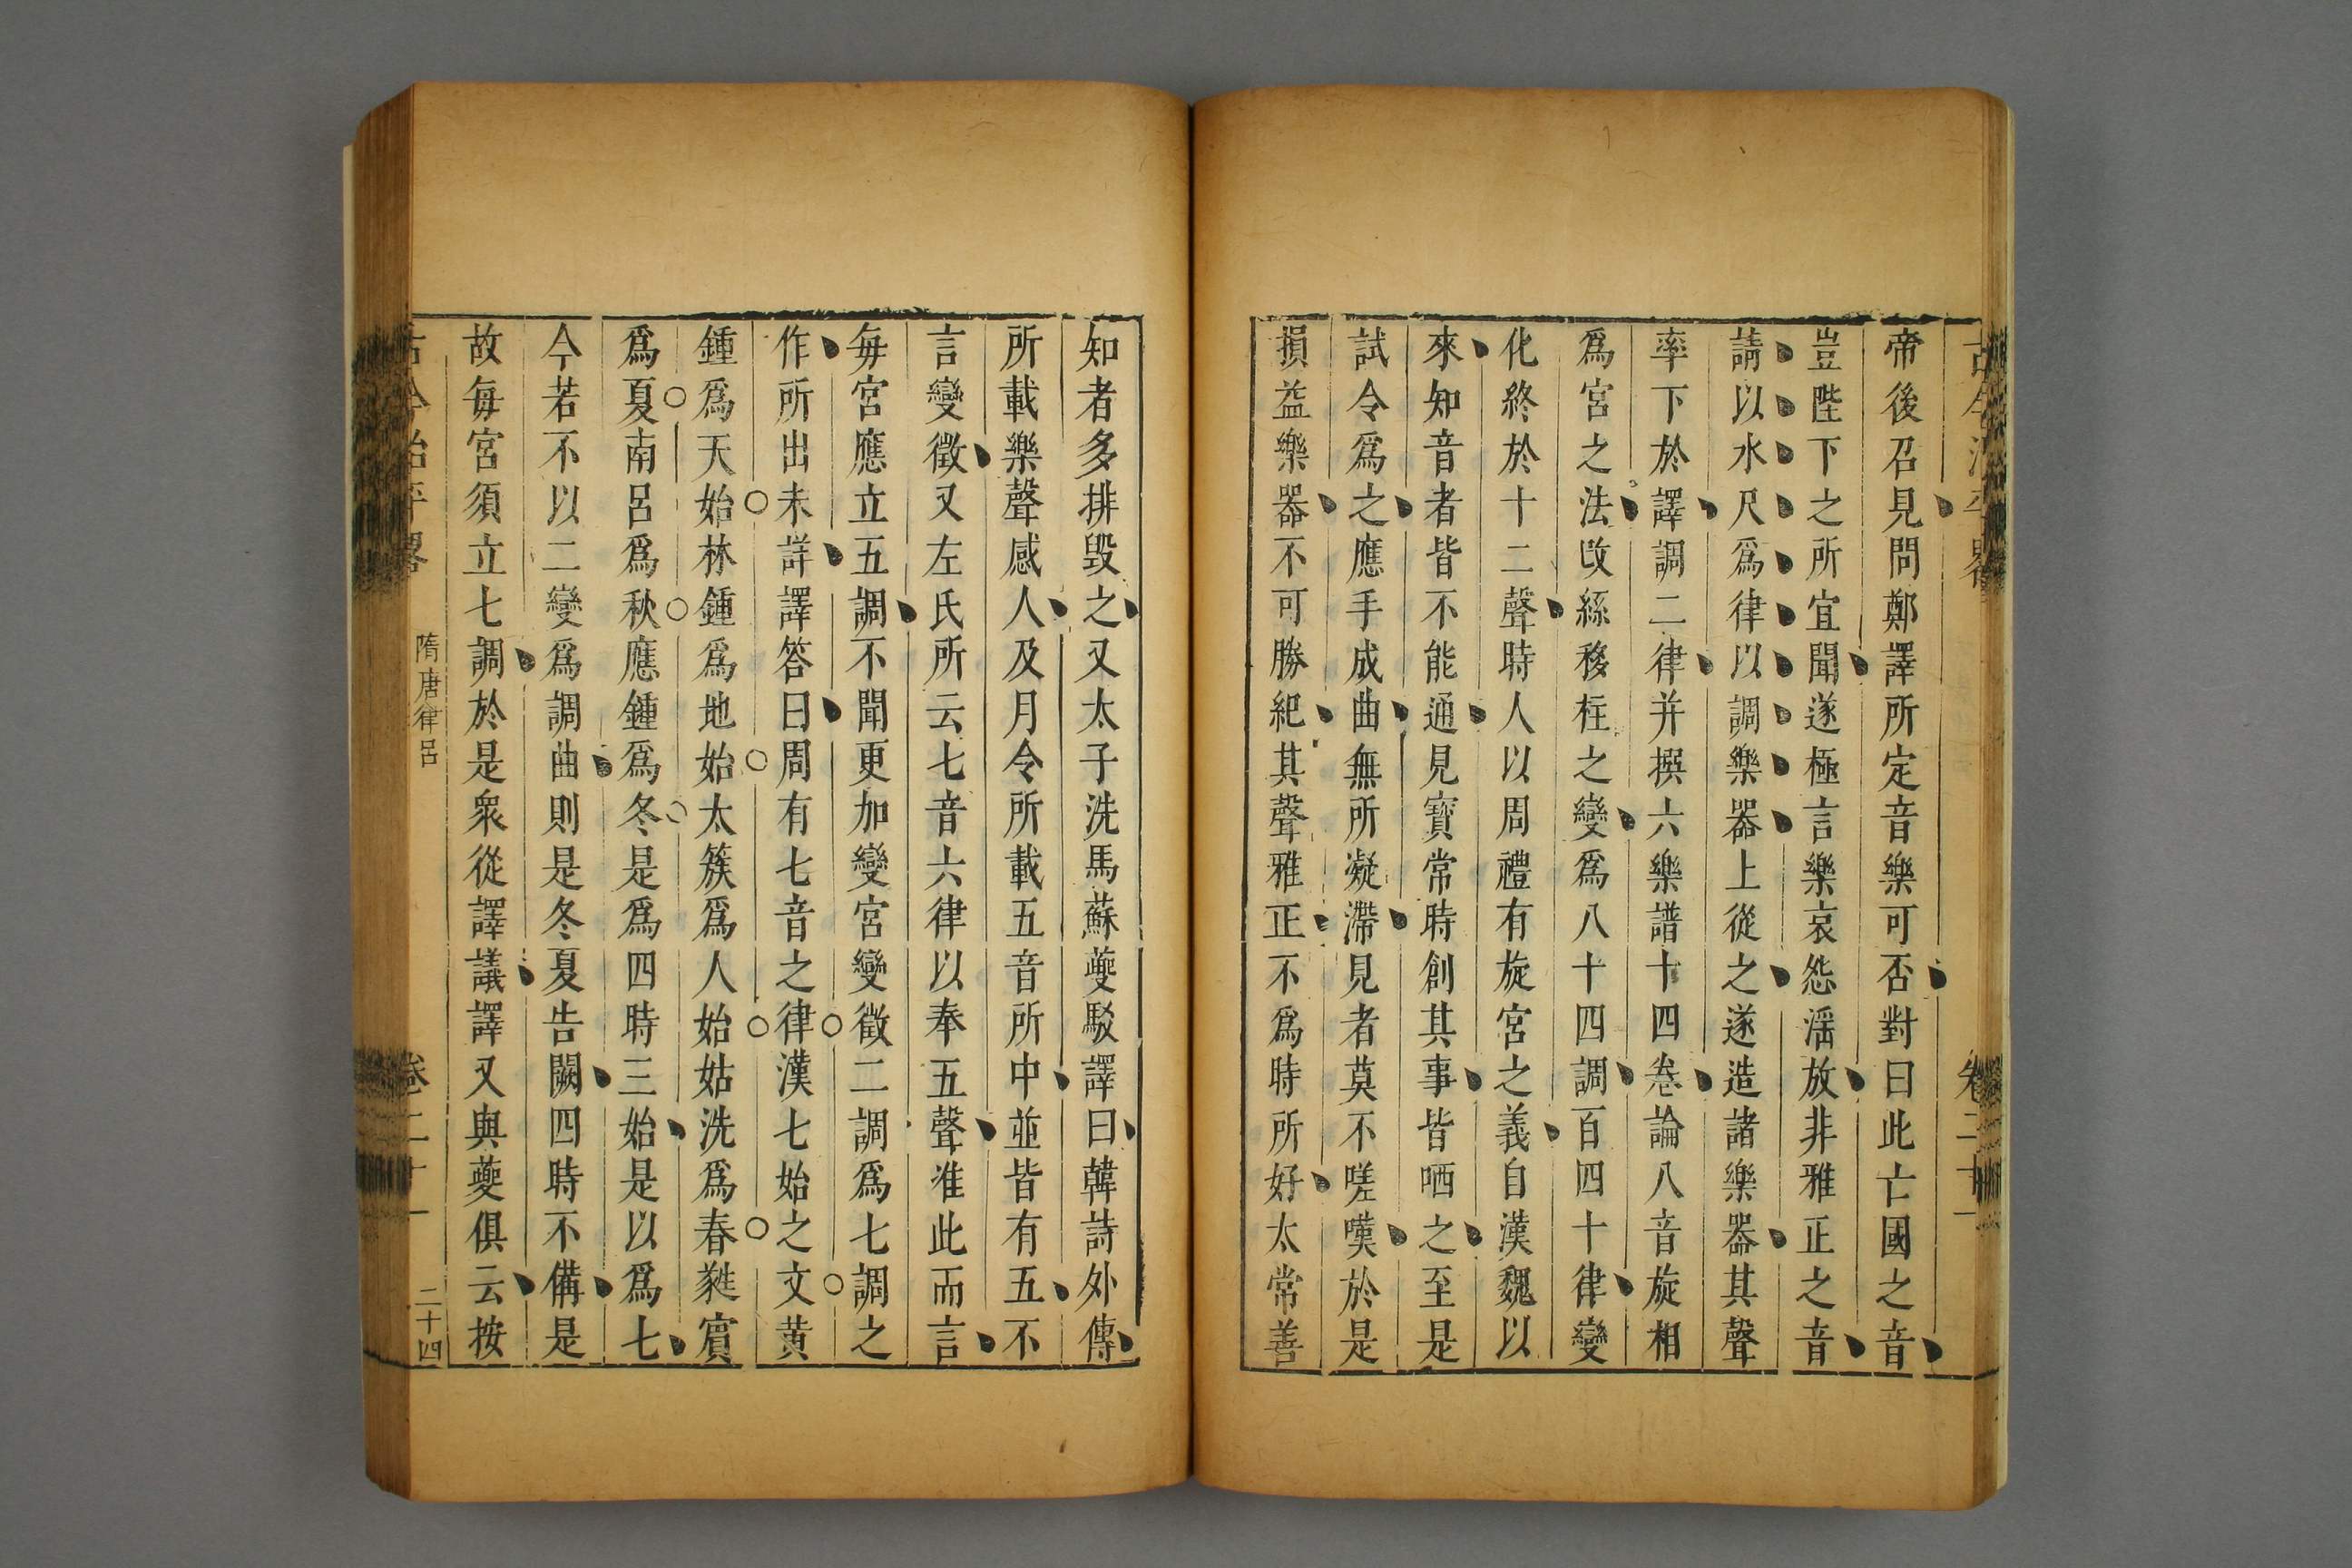 古今治平畧 卷二十一
帝後召見問鄭譯所定音樂可否對曰此亡國之音
豈陛下之所宜聞遂極言樂哀怨滛放非雅正之音
請以水尺為律以調樂器上從之遂造諸樂器其聲
率下於譯調二律并撰六樂譜十四卷論八音旋相
為宮之法改絲移柱之變為八十四調百四十律變
化終於十二聲時人以周禮有旋宮之義自漢魏以
來知音者皆不能通見寶常時創其事皆哂之至是
試令爲之應手成曲無所凝滯見者莫不嗟嘆於是
損益樂器不可勝紀其聲雅正不為時所好太常善
知者多排毀之又太子洗馬蘇夔駁譯曰韓詩外傳
所載樂聲感人及月令所載五音所中並皆有五不
言變徵又左氏所云七音六律以奉五聲准此而言
每宮應立五調不聞更加變宮變徵二調爲七調之
作所出未詳譯答曰周有七音之律漢七始之文黄
鍾爲天始林鍾爲地始太簇爲人始姑洗爲春蕤賓
爲夏南呂爲秋應鍾爲冬是爲四時三始是以爲七
今若不以二變爲調曲則是冬夏告闕四時不備是
故每宮須立七調於是衆從譯議譯又與夔俱云按
古今治平畧 隋唐律呂 卷二十一 二十四